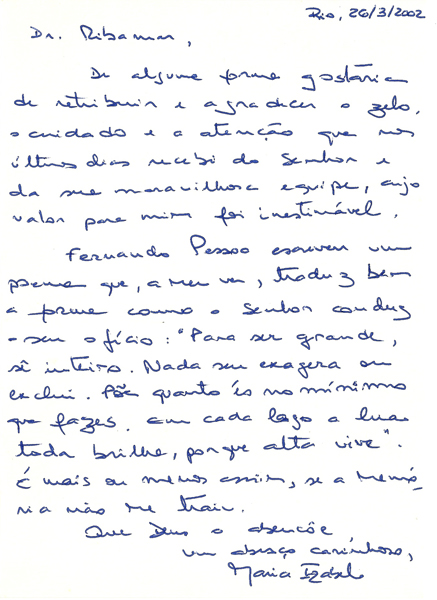 Rio, 26/3/2002
Dr. Ribamar,
De alguma forma gostaria
de retribuir e agradecer o zelo,
o cuidado e a atenção que nos
últimos dias recebi do Senhor e
da sua maravilhosa equipe, cujo
valor para mim foi inestimável.
Fernando Pessoa escreveu um
poema que, a meu ver, traduz bem
a forma como o Senhor conduz
seu ofício: "Para ser grande,
sê inteiro. Nada seu exagera ou
exclui. Põe quanto és no mínimo
que fazes. Em cada lago a lua
toda brilha, porque alta vive".
É mais ou menos assim, se a memó-
ria não me trair.
Que Deus o abençõe,
um abraço carinhoso,
Maria Izabel